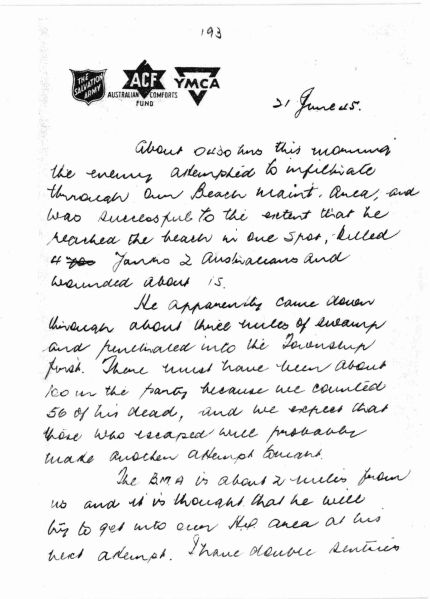 193
THE
SALVATION
ARMY
ACF
AUSTRALIAN COMFORTS
FUND
YMCA
21 June 45.
About 0430 hrs this morning
the enemy attempted to infiltrate
through our Beach maint. Area, and
was successful to the extent that he
reached the beach in one spot, killed
4 Yanks 2 Australians and
wounded about 15.
He apparently came down
through about three miles of swamp
and penetrated into the Township
first. There must have been about
100 in the party because we counted
56 of his dead, and we expect that
those who escaped will probably
make another attempt tonight.
The BMA is about 2 miles from
us and it is thought that he will
try to get into our H.Q. area at his
next attempt. I have double sentries